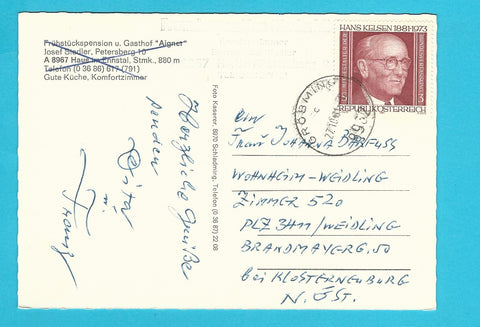 Frühstückspension u. Gasthof "Aigner"
Josef Siedler, Petersberg 10
A 8967 Haus im Ennstal, Stmk., 880 m
Telefon (0 36 86) 617 (791)
Gute Küche, Komfortzimmer
Herzliche Grüße
senden
u.
Franz
Foto Kaserer, 8970 Schladming, Telefon (0 36 87) 22 08
HANS KELSEN 1881-1973
REPUBLIK ÖSTERREICH
3
GRÖBMING
an
Frau Johanna
WOHNHEIM-WEIDLING
ZIMMER 520
PLZ 3411/WEIDLING
BRANDMAYERG. 50
bei KLOSTERNEUBURG
N.ÖST.